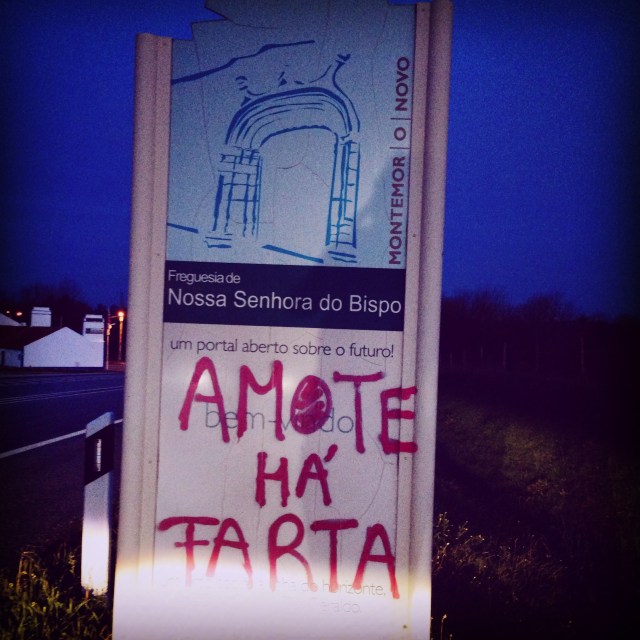 MONTEMOR | O | NOVO
Freguesia de
Nossa Senhora do Bispo
um portal aberto sobre o futuro!
bem-vindo
AMOTE
HÁ
FARTA